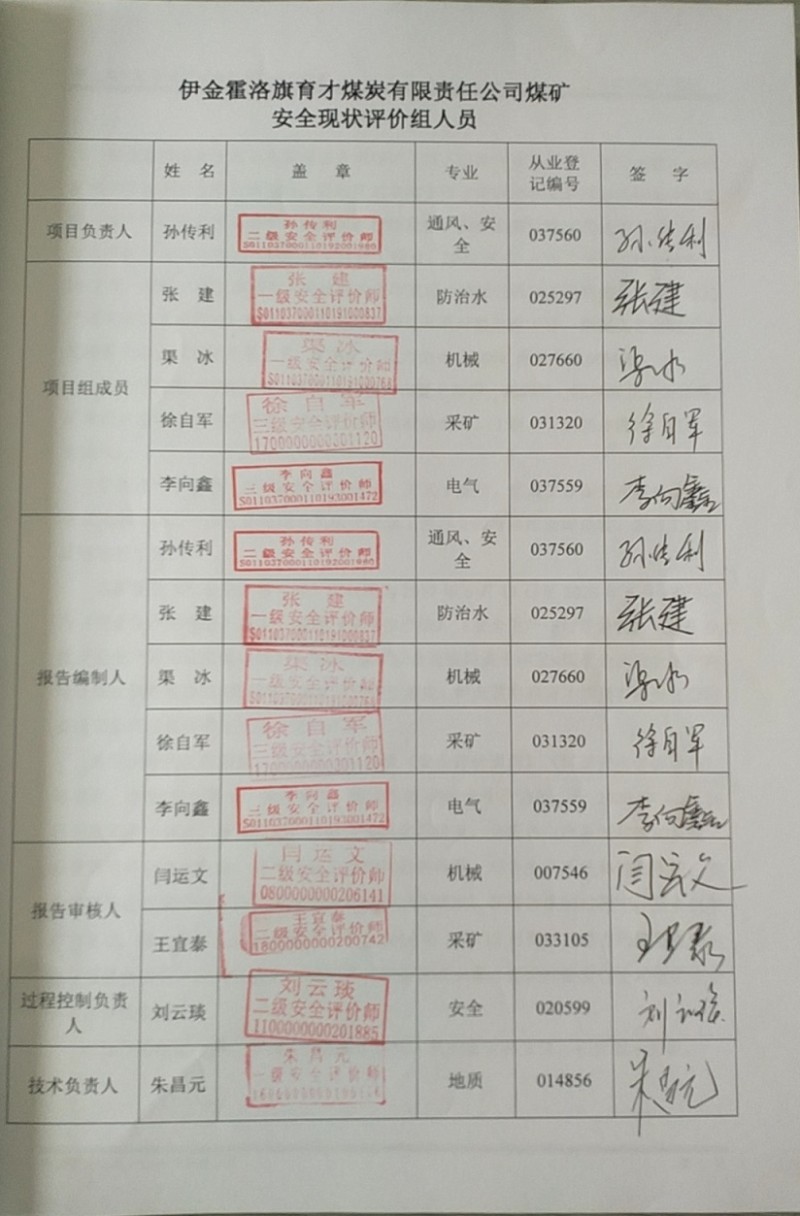 伊金霍洛旗育才煤炭有限责任公司煤矿
安全现状评价组人员
姓 名 盖 章 专业 从业登记编号 签 字
项目负责人 孙传利 孙传利 二级安全评价师 S011037000110192001980 通风、安全 037560 孙传利
项目组成员
张 建 张建 一级安全评价师 S011037000110191000837 防治水 025297 张建
渠 冰 渠冰 一级安全评价师 S011037000110191000768 机械 027660 渠冰
徐自军 徐自军 三级安全评价师 1700000000301120 采矿 031320 徐自军
李向鑫 李向鑫 三级安全评价师 S011037000110193001472 电气 037559 李向鑫
报告编制人
孙传利 孙传利 二级安全评价师 S011037000110192001980 通风、安全 037560 孙传利
张 建 张建 一级安全评价师 S011037000110191000837 防治水 025297 张建
渠 冰 渠冰 一级安全评价师 S011037000110191000768 机械 027660 渠冰
徐自军 徐自军 三级安全评价师 1700000000301120 采矿 031320 徐自军
李向鑫 李向鑫 三级安全评价师 S011037000110193001472 电气 037559 李向鑫
报告审核人
闫运文 闫运文 二级安全评价师 0800000000206141 机械 007546 闫运文
王宜泰 王宜泰 二级安全评价师 1800000000200742 采矿 033105 王宜泰
过程控制负责人 刘云琰 刘云琰 二级安全评价师 1100000000201885 安全 020599 刘云琰
技术负责人 朱昌元 朱昌元 一级安全评价师 地质 014856 朱昌元